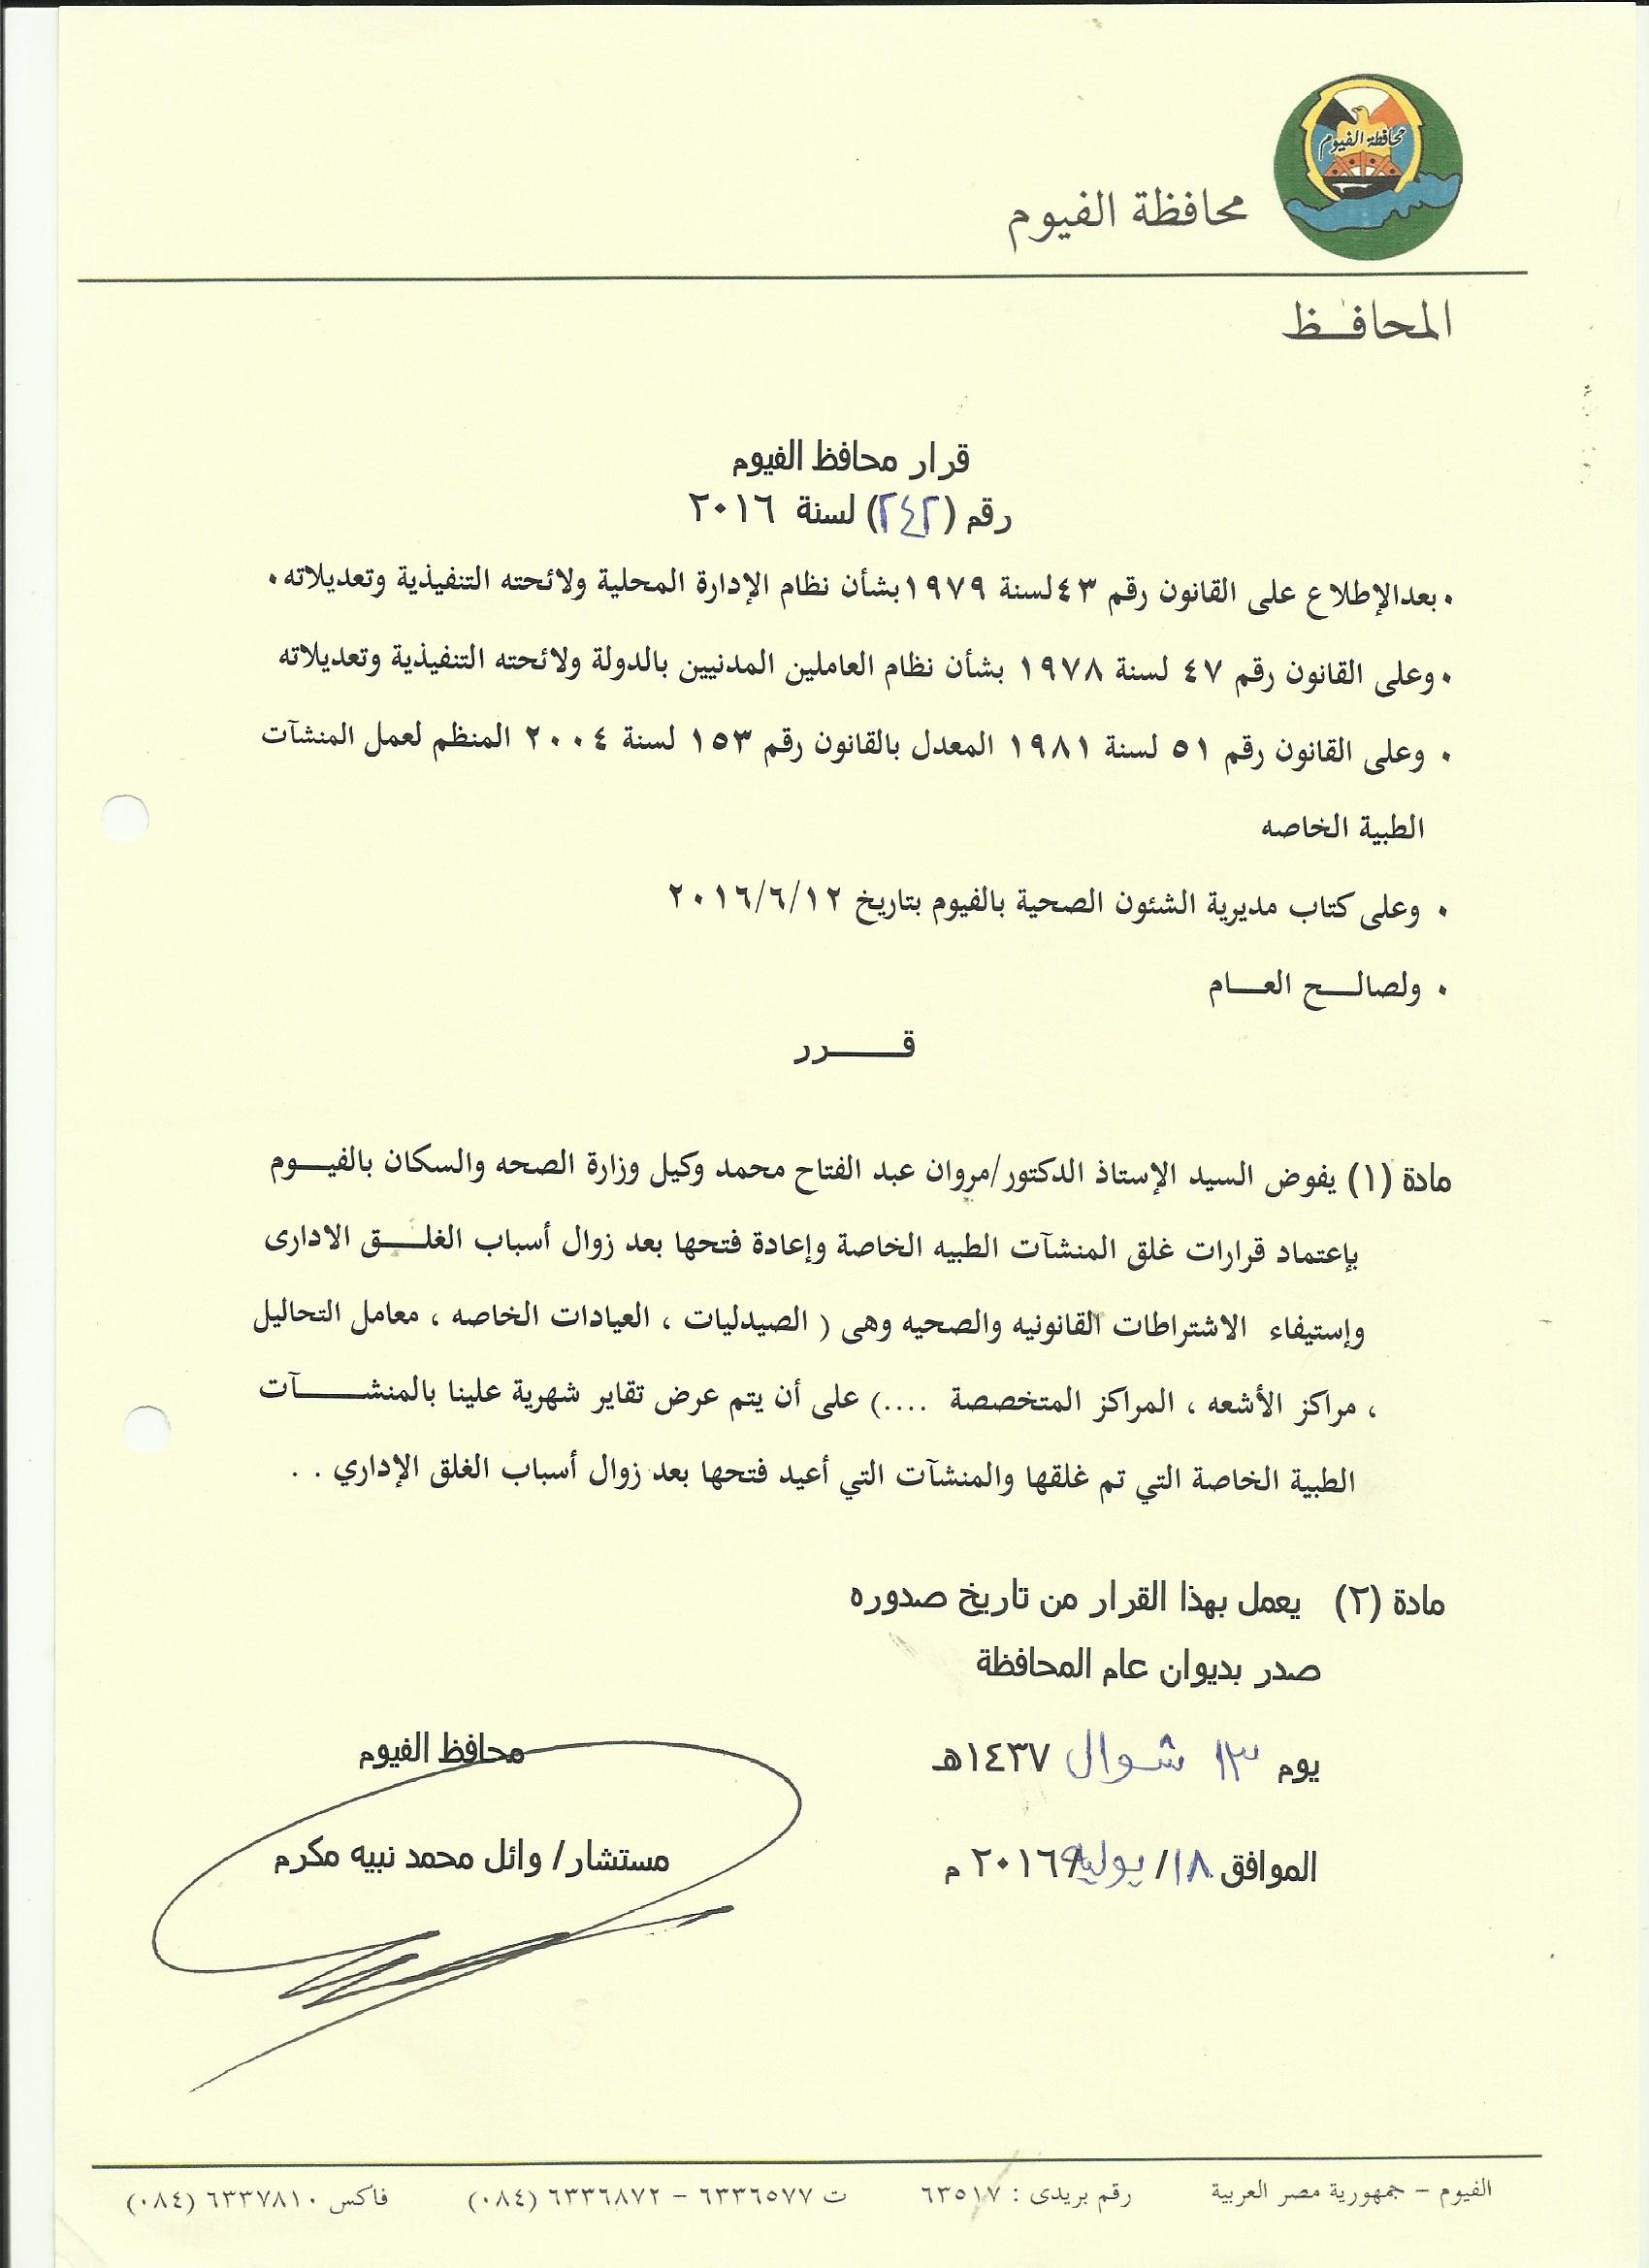 محافظة الفيوم
محافظة الفيوم
المحافـظ
قرار محافظ الفيوم
رقم (٢٤٢) لسنة ٢٠١٦
• بعدالإطلاع على القانون رقم ٤٣لسنة ١٩٧٩بشأن نظام الإدارة المحلية ولائحته التنفيذية وتعديلاته•
• وعلى القانون رقم ٤٧ لسنة ١٩٧٨ بشأن نظام العاملين المدنيين بالدولة ولائحته التنفيذية وتعديلاته
• وعلى القانون رقم ٥١ لسنة ١٩٨١ المعدل بالقانون رقم ١٥٣ لسنة ٢٠٠٤ المنظم لعمل المنشآت
الطبية الخاصه
• وعلى كتاب مديرية الشئون الصحية بالفيوم بتاريخ ٢٠١٦/٦/١٢
• ولصالــح العــام
قــــرر
مادة (١) يفوض السيد الإستاذ الدكتور/مروان عبد الفتاح محمد وكيل وزارة الصحه والسكان بالفيــوم
بإعتماد قرارات غلق المنشآت الطبيه الخاصة وإعادة فتحها بعد زوال أسباب الغلــق الادارى
وإستيفاء الاشتراطات القانونيه والصحيه وهى ( الصيدليات ، العيادات الخاصه ، معامل التحاليل
، مراكز الأشعه ، المراكز المتخصصة ....) على أن يتم عرض تقاير شهرية علينا بالمنشــــآت
الطبية الخاصة التي تم غلقها والمنشآت التي أعيد فتحها بعد زوال أسباب الغلق الإداري . .
مادة (٢) يعمل بهذا القرار من تاريخ صدوره
صدر بديوان عام المحافظة
يوم ١٣ شوال ١٤٣٧هـ
الموافق ١٨/ يوليه/٢٠١٦ م
محافظ الفيوم
مستشار/ وائل محمد نبيه مكرم
الفيوم – جمهورية مصر العربية رقم بريدى : ٦٣٥١٧ ت ٦٣٣٦٥٧٧ – ٦٣٣٦٨٧٢ (٠٨٤) فاكس ٦٣٣٧٨١٠ (٠٨٤)